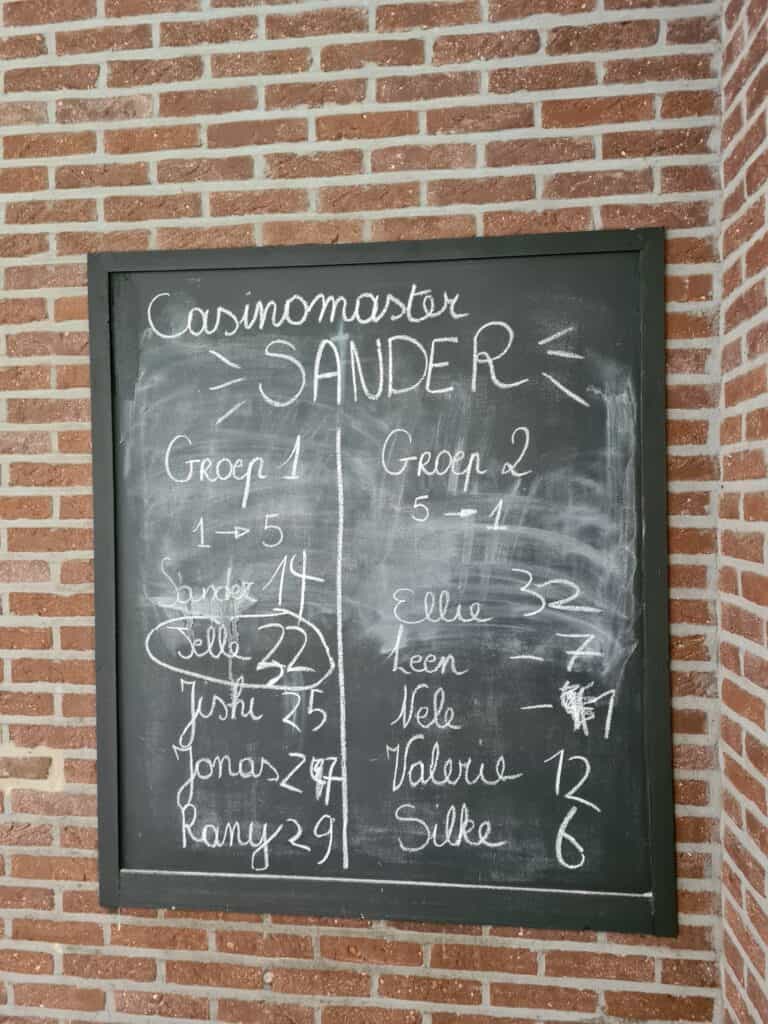 Casinomaster
SANDER
Groep 1
1 → 5
Sander 14
Jelle 32
Jishi 25
Jonas 27
Rany 29
Groep 2
5 → 1
Ellie 32
Leen - 7
Nele - 1
Valerie 12
Silke 6